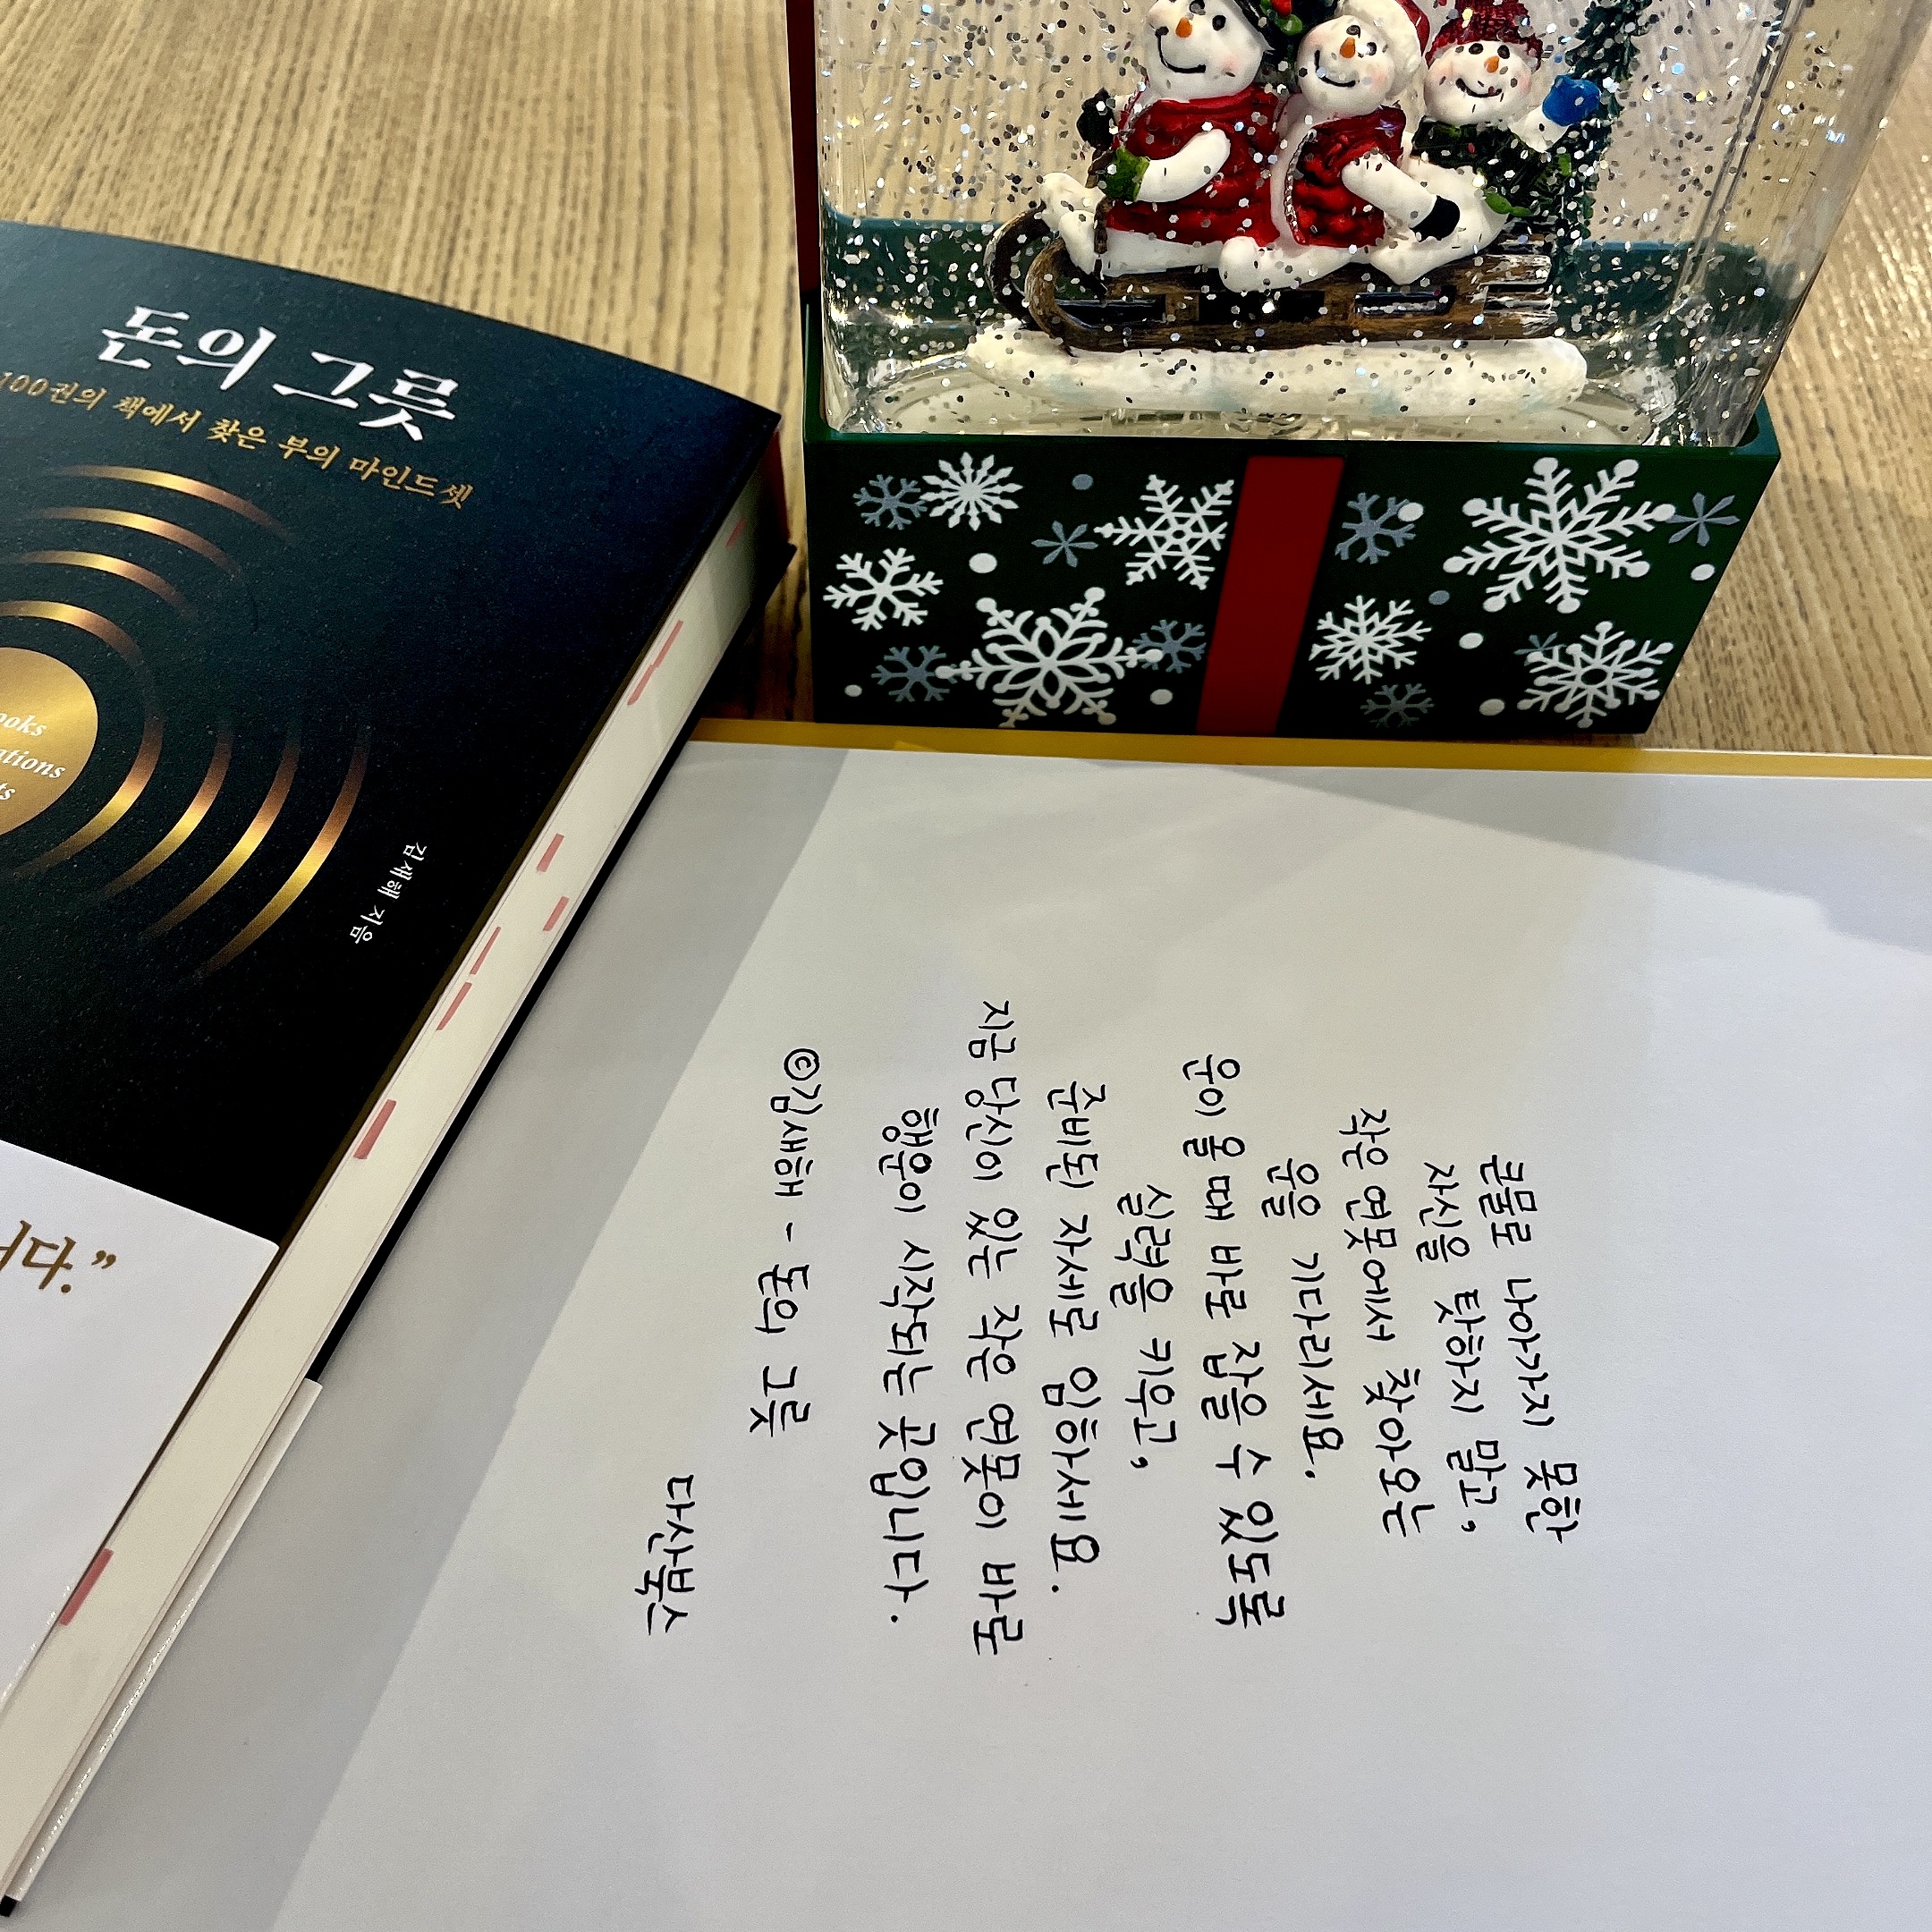 돈의 그릇
100권의 책에서 찾은 부의 마인드셋
김새해 지음
큰물로 나아가지 못한
자신을 탓하지 말고,
작은 연못에서 찾아오는
운을 기다리세요.
운이 올 때 바로 잡을 수 있도록
실력을 키우고,
준비된 자세로 임하세요.
지금 당신이 있는 작은 연못이 바로
행운이 시작되는 곳입니다.
©김새해 - 돈의 그릇
다산북스